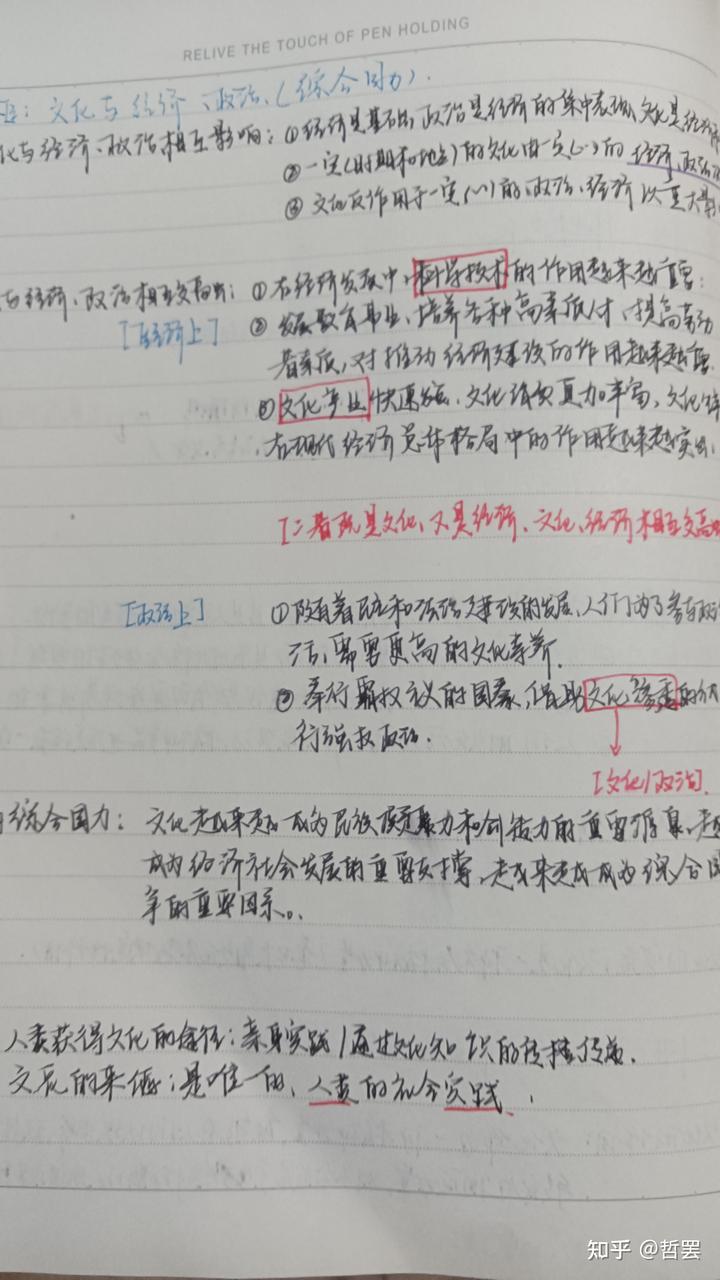 RELIVE THE TOUCH OF PEN HOLDING
文化与经济、政治、(综合国力).
化与经济、政治相互影响: ①经济是基础, 政治是经济的集中表现, 文化是经济
②一定(时期和地点)的文化由一定(〃)的经济、政治
③文化反作用于一定(〃)的政治、经济以重大影
与经济、政治相互交融: ①在经济发展中, 科学技术的作用越来越重要;
[经济上]
②发展教育事业、培养各种高素质人才、提高劳动
者素质, 对推动经济建设的作用越来越重
③文化产业快速发展、文化消费更加丰富、文化生
在现代经济总体格局中的作用越来越突出
[二者既是文化、又是经济、文化、经济相互交融
[政治上]
①随着民主和法治建设的发展, 人们为了参与政治
活, 需要更高的文化素养.
②奉行霸权主义的国家, 借助文化渗透的
行强权政治.
[文化/政治].
综合国力: 文化越来越成为民族凝聚力和创造力的重要源泉、越
成为经济社会发展的重要支撑、越来越成为综合国
争的重要因素。
人类获得文化的途径: 亲身实践/通过文化知识的传播
文化的来源: 是唯一的、人类的社会实践.
知乎 @哲罢